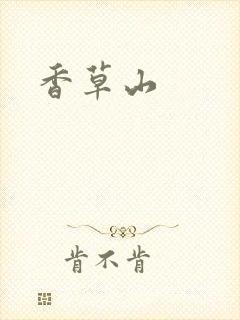 香草山
肯不肯